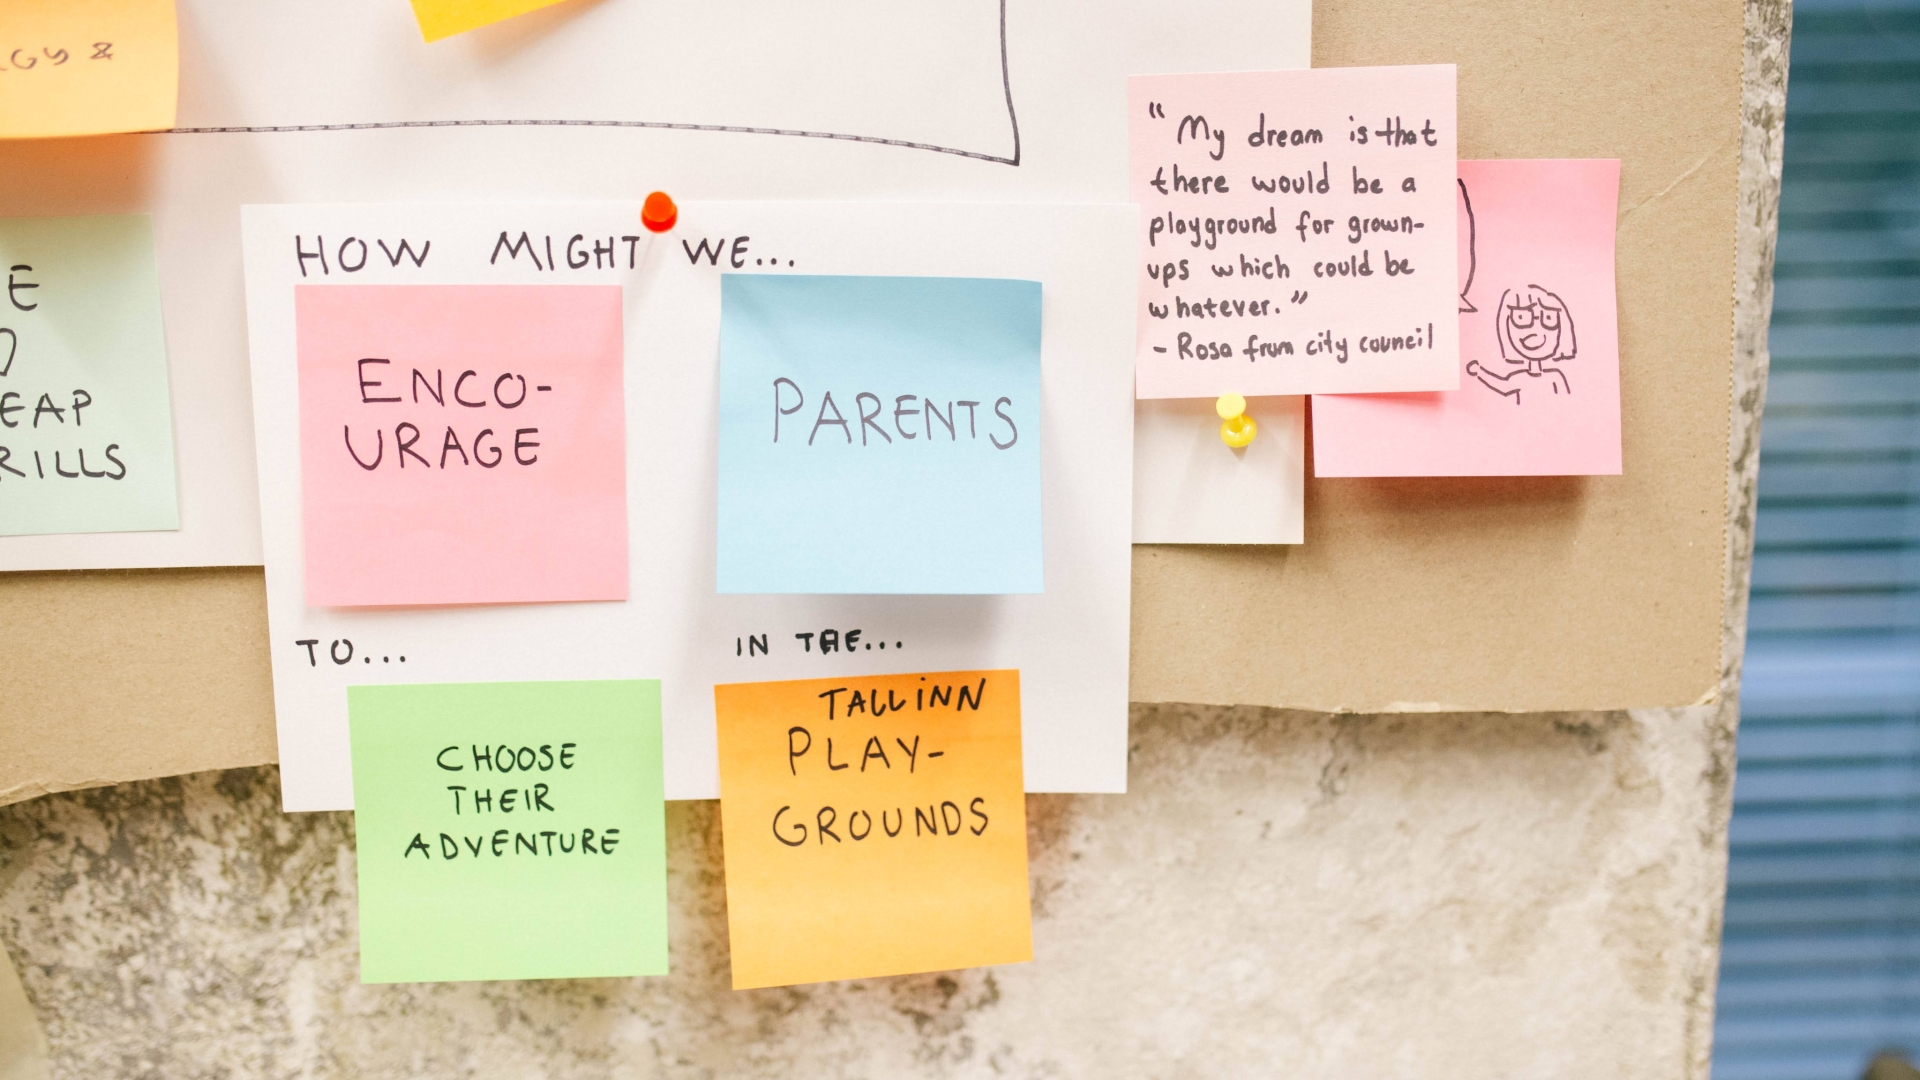 &
E
EAP
RILLS
HOW MIGHT WE...
ENCO-
URAGE
PARENTS
TO...
IN THE...
CHOOSE
THEIR
ADVENTURE
TALLINN
PLAY-
GROUNDS
"My dream is that
there would be a
playground for grown-
ups which could be
whatever."
- Rosa from city council